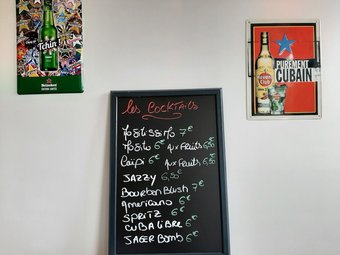 Tchin
Heineken
EDITION LIMITÉE
PUREMENT
CUBAIN
Havana
Club
Les COCKTAILS
Mojitissimo 7€
Mojito 6€ Aux FRuits 6,50
Caïpi 6€ Aux FRuits 6,50
JAZZY 6,50€
Bourbon Blush 7€
Americano 6€
SPRITZ 6€
CUBA LIBRE 6€
JAGER BOMB 6€